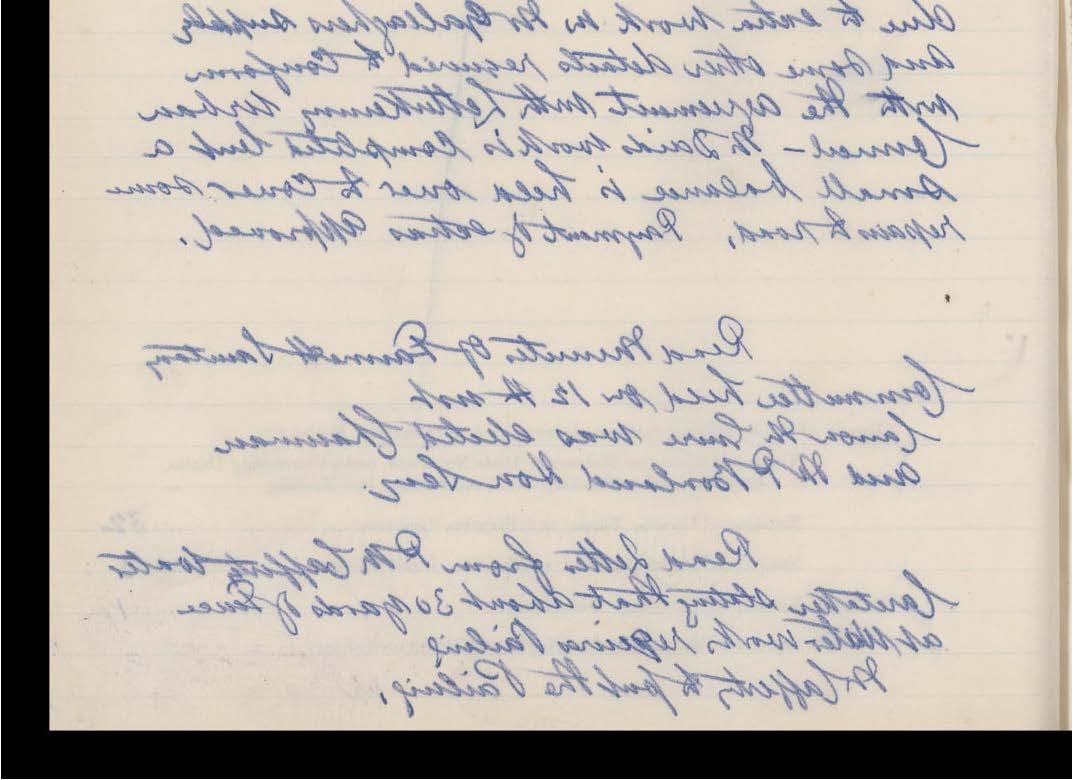 due to extra work in McGallaghers supply
and some other details required to conform
with the agreement with Letterkenny Urban
Council - McDaids work is completed but a
small balance is held over to cover some
repairs to road, Payment of extras approved.
Read minutes of
Committee held on 12th inst
Canon McClure was elected Chairman
and Mr R Borland Hon Secy.
Read letter from P McCafferty Water
Caretaker stating that about 30 yards of fence
at Water works requires Pailing
McCafferty to put the Pailing.
32